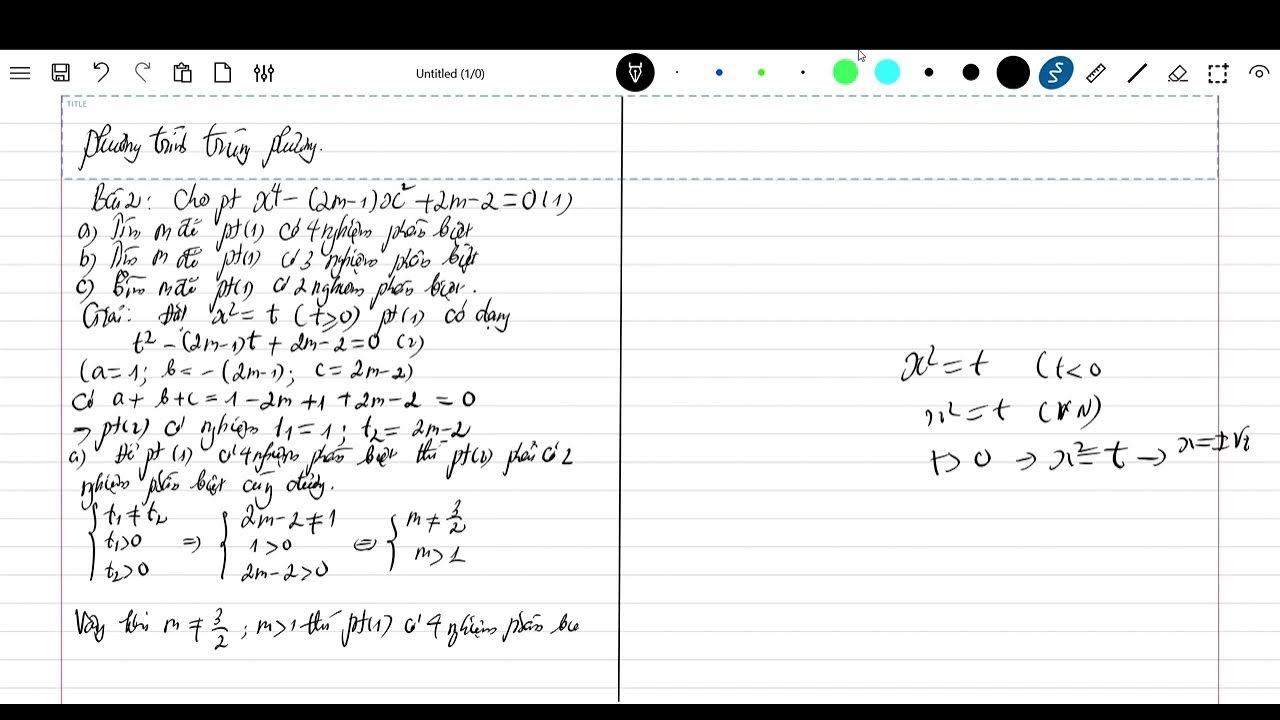 Untitled (1/0)
TITLE
Phương trình trùng phương.
Bài 2: Cho pt x⁴ - (2m-1)x² + 2m-2 = 0 (1)
a) Tìm m để pt(1) có 4 nghiệm phân biệt
b) Tìm m để pt(1) có 3 nghiệm phân biệt
c) Tìm m để pt(1) có 2 nghiệm phân biệt.
Giải: Đặt x² = t (t⩾0) pt(1) có dạng
t² - (2m-1)t + 2m-2 = 0 (2)
(a=1; b= -(2m-1); c = 2m-2)
Có a + b + c = 1 - 2m + 1 + 2m - 2 = 0
→ pt(2) có nghiệm t₁ = 1; t₂ = 2m-2
a) Để pt (1) có 4 nghiệm phân biệt thì pt(2) phải có 2
nghiệm phân biệt cùng dương.
{ t₁ ≠ t₂ { 2m-2 ≠ 1 { m ≠ 3/2
t₁>0 => 1>0 <=> m>1
t₂>0 2m-2>0
Vậy khi m ≠ 3/2 ; m>1 thì pt(1) có 4 nghiệm phân biệ
x² = t (t<0
x² = t (VN)
t > 0 → x² = t → x = ±√t